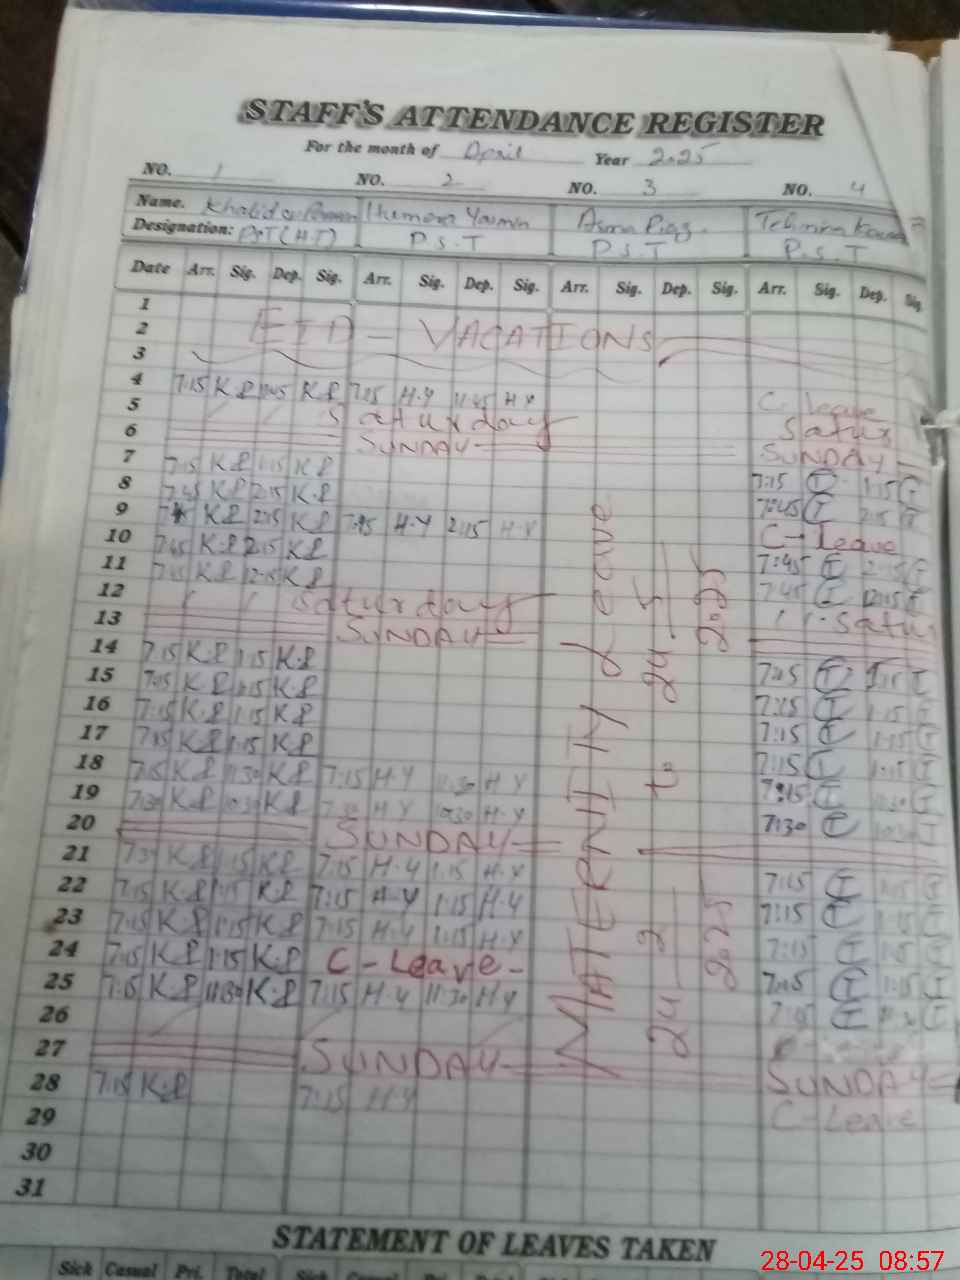 STAFF'S ATTENDANCE REGISTER
For the month of April Year 2025
NO. 1 NO. 2 NO. 3 NO. 4
Name. Khalida Humera Yasmin Asma Riaz. Tehmina
Designation: (H.T) P.S.T P.S.T P.S.T
Date Arr. Sig. Dep. Sig. Arr. Sig. Dep. Sig. Arr. Sig. Dep. Sig. Arr. Sig. Dep. Sig.
1
2 EID - VACATIONS
3
4 7:15 K.P 11:45 K.P 7:15 H.Y 11:45 H.Y C-Leave
5 Saturday Satur
6 SUNDAY SUNDAY
7 7:15 K.P 1:15 K.P 7:15 T 1:15 T
8 7:45 K.P 2:15 K.P 7:45 T 2:15 T
9 K.P 2:15 K.P 7:45 H.Y 2:15 H.Y C-Leave
10 7:45 K.P 2:15 K.P 7:45 T 2:15 T
11 7:45 K.P 12:15 K.P 7:45 T 12:15 T
12 Saturday Satu
13 SUNDAY
14 7:15 K.P 1:15 K.P T 1:15 T
15 K.P 1:15 K.P 7:15 T 1:15 T
16 7:15 K.P 1:15 K.P 7:15 T 1:15 T
17 7:15 K.P 1:15 K.P 7:15 T 1:15 T
18 7:15 K.P 11:30 K.P 7:15 H.Y 11:30 H.Y 7:15 T 11:30 T
19 7:30 K.P 10:30 K.P 7:30 H.Y 10:30 H.Y 7:30 T 10:30 T
20 SUNDAY
21 K.P 1:15 K.P 7:15 H.Y 1:15 H.Y 7:15 T 1:15 T
22 7:15 K.P 1:15 K.P 7:15 H.Y 1:15 H.Y 7:15 T 1:15 T
23 7:15 K.P 1:15 K.P 7:15 H.Y 1:15 H.Y 7:15 T 1:15 T
24 7:15 K.P 1:15 K.P C-Leave- T 1:15 T
25 7:15 K.P 11:30 K.P 7:15 H.Y 11:30 H.Y 7:15 T 11:30 T
26
27 SUNDAY SUNDAY
28 7:15 K.P 7:15 H.Y C-Leave
29
30
31
MATERNITY Leave
24 - 2 - 2025 to 24 - 5 - 2025
STATEMENT OF LEAVES TAKEN
Sick Casual Pri. Total Sick Casual Pri. Total
28-04-25 08:57